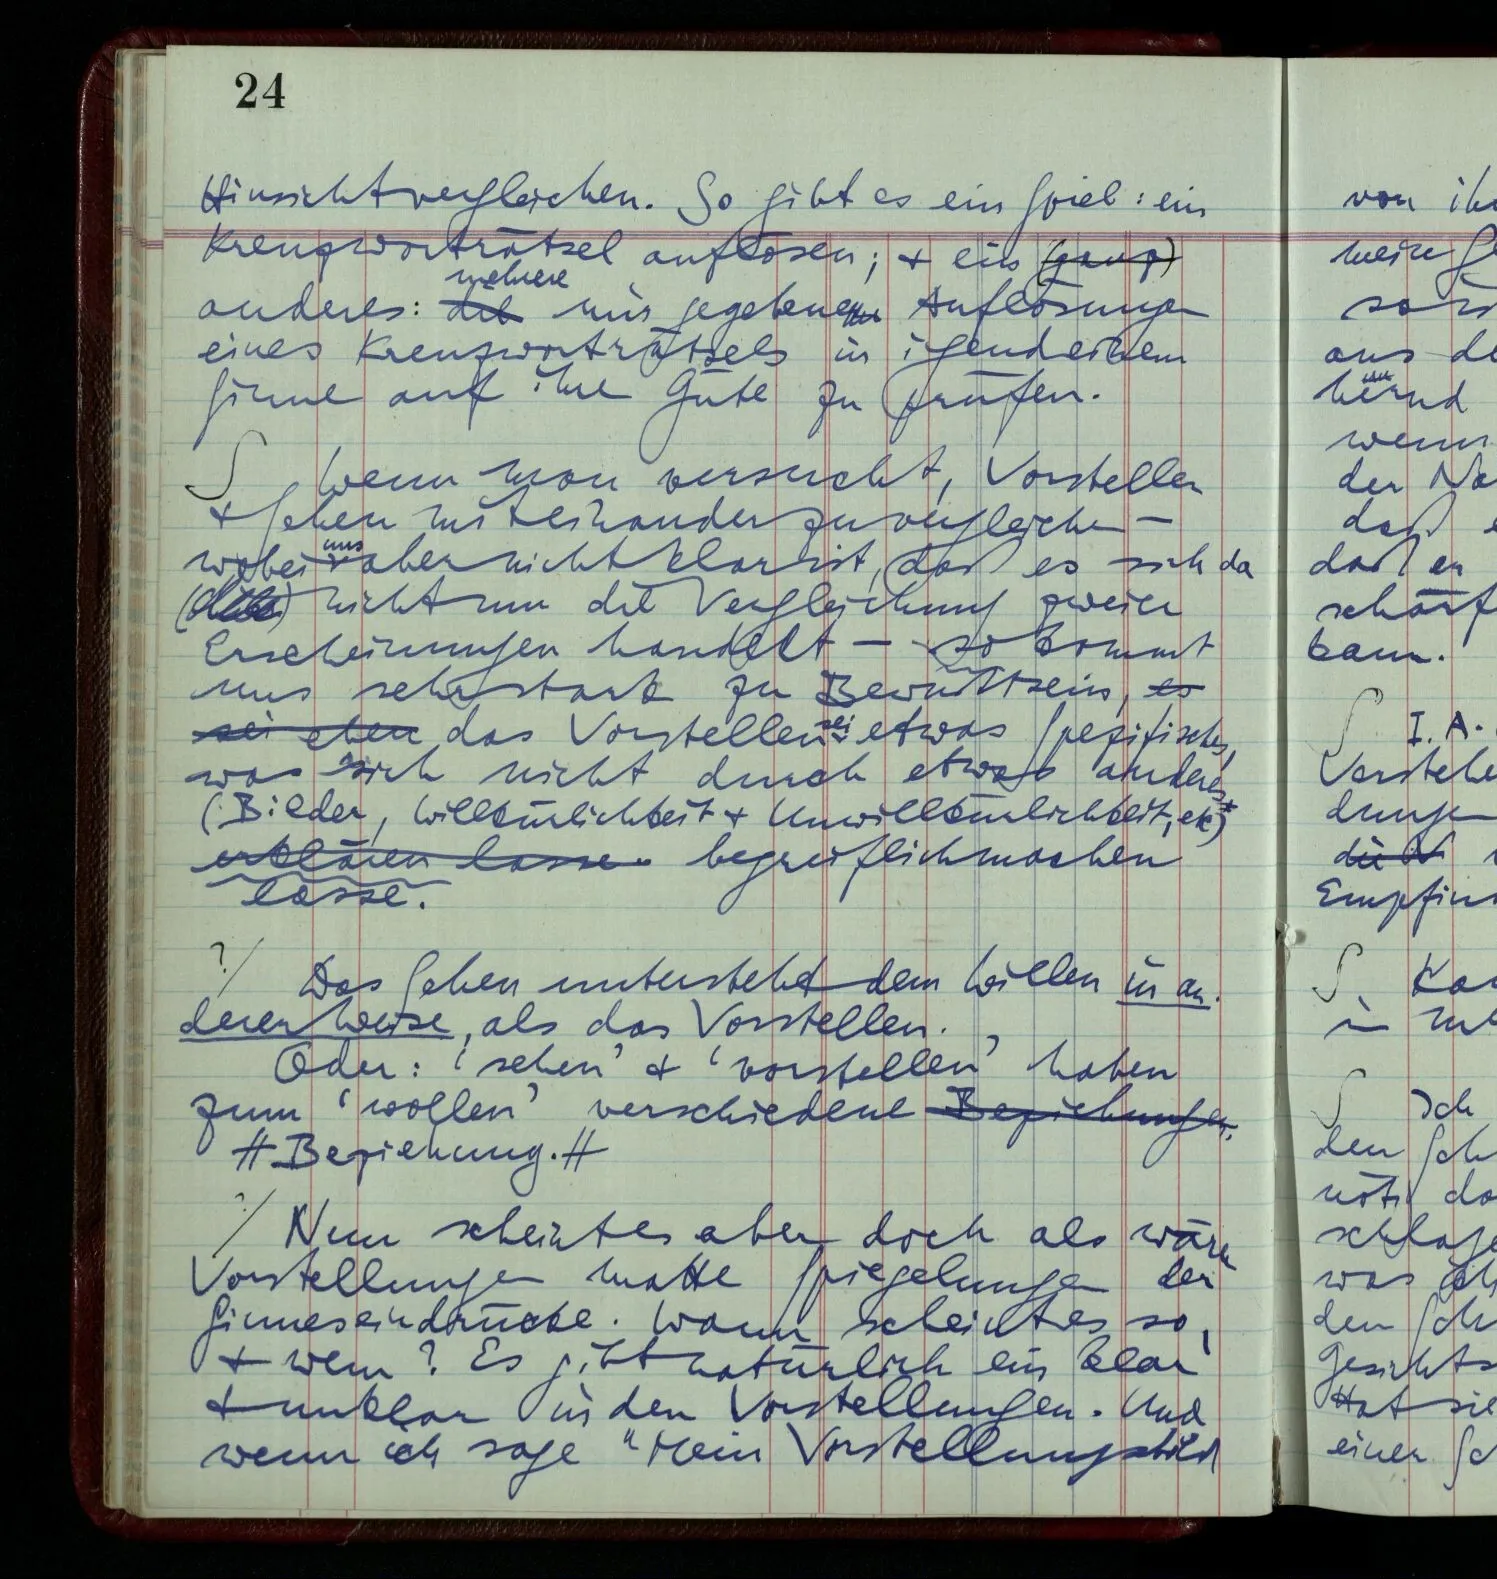 24
Hinsicht vergleichen. So gibt es ein Spiel: ein
Kreuzworträtsel auflösen; + ein (ganz)
mehrere
anderes: die mir gegebenen Auflösungen
eines Kreuzworträtsels in irgendeinem
Sinne auf ihre Güte zu prüfen.
∫ Wenn man versucht, Vorstellen
+ Sehen miteinander zu vergleichen –
uns
wobei aber nicht klar ist, daß es sich da
nicht um die Vergleichung zweier
Erscheinungen handelt – so kommt
uns sehr stark zu Bewußtsein, es
sei eben das Vorstellen sei etwas Spezifisches,
was sich nicht durch etwas anderes
(Bilder, Willkürlichkeit + Unwillkürlichkeit, etc)
erklären lasse. begreiflich machen
lasse.
?/ Das Sehen untersteht dem Willen in an-
derer Weise, als das Vorstellen.
Oder: ‘sehen’ + ‘vorstellen’ haben
zum ‘wollen’ verschiedene Beziehungen.
Beziehung.
?/ Nun scheint es aber doch als wären
Vorstellungen matte Spiegelungen der
Sinneseindrücke. Wann scheint es so,
+ wem? Es gibt natürlich ein klar
+ unklar in den Vorstellungen. Und
wenn ich sage "Mein Vorstellungsbild
von
meine
aus
wenn
der
daß
daß er
kann.
I. A.
Ich
den
was
den
Hat sie
einer